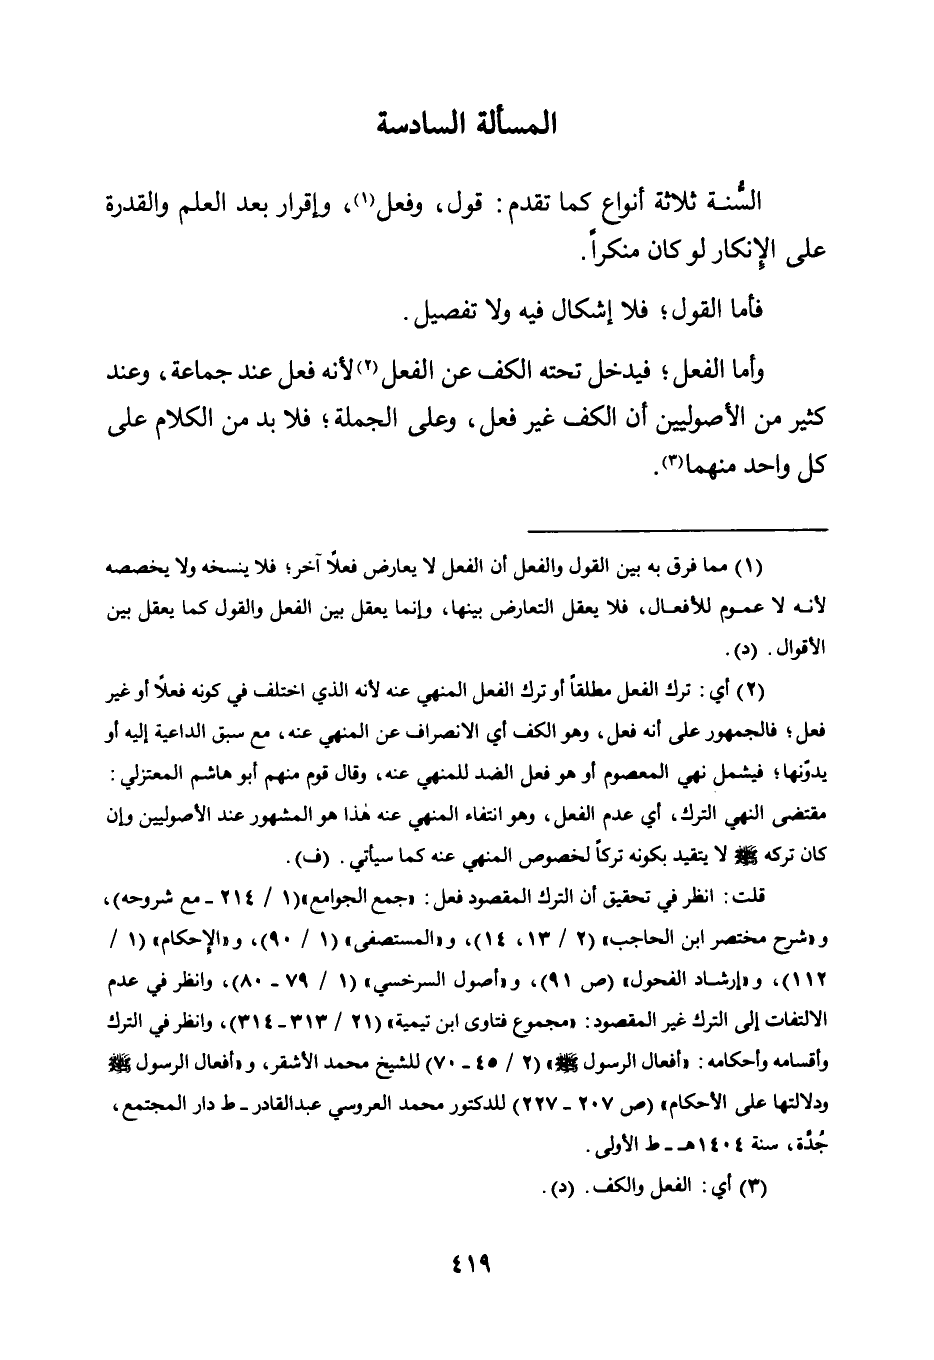 المسألة السادسة
السُّنة ثلاثة أنواع كما تقدم: قول، وفعل(١)، وإقرار بعد العلم والقدرة
على الإِنكار لو كان منكراً.
فأما القول؛ فلا إشكال فيه ولا تفصيل.
وأما الفعل؛ فيدخل تحته الكف عن الفعل(٢) لأنه فعل عند جماعة، وعند
كثير من الأصوليين أن الكف غير فعل، وعلى الجملة؛ فلا بد من الكلام على
كل واحد منهما(٣).
(١) مما فرق به بين القول والفعل أن الفعل لا يعارض فعلاً آخر؛ فلا ينسخه ولا يخصصه
لأنه لا عموم للأفعال، فلا يعقل التعارض بينها، وإنما يعقل بين الفعل والقول كما يعقل بين
الأقوال. (د).
(٢) أي: ترك الفعل مطلقاً أو ترك الفعل المنهي عنه لأنه الذي اختلف في كونه فعلاً أو غير
فعل؛ فالجمهور على أنه فعل، وهو الكف أي الانصراف عن المنهي عنه، مع سبق الداعية إليه أو
بدوّنها؛ فيشمل نهي المعصوم أو هو فعل الضد للمنهي عنه، وقال قوم منهم أبو هاشم المعتزلي:
مقتضى النهي الترك، أي عدم الفعل، وهو انتفاء المنهي عنه هٰذا هو المشهور عند الأصوليين وإن
كان تركه ﷺ لا يتقيد بكونه تركاً لخصوص المنهي عنه كما سيأتي. (ف).
قلت: انظر في تحقيق أن الترك المقصود فعل: «جمع الجوامع»(١ / ٢١٤ ـ مع شروحه)،
و«شرح مختصر ابن الحاجب» (٢ / ١٣، ١٤)، و«المستصفى» (١ / ٩٠)، و«الإِحكام» (١ /
١١٢)، و«إرشاد الفحول» (ص ٩١)، و«أصول السرخسي» (١ / ٧٩ ـ ٨٠)، وانظر في عدم
الالتفات إلى الترك غير المقصود: «مجموع فتاوى ابن تيمية» (٢١ / ٣١٣ـ٣١٤)، وانظر في الترك
وأقسامه وأحكامه: «أفعال الرسول ﷺ» (٢ / ٤٥ ـ ٧٠) للشيخ محمد الأشقر، و«أفعال الرسول ﷺ
ودلالتها على الأحكام» (ص ٢٠٧ ـ ٢٢٧) للدكتور محمد العروسي عبدالقادر ـ ط دار المجتمع،
جُدَّة، سنة ١٤٠٤هـ ـ ط الأولى.
(٣) أي: الفعل والكف. (د).
٤١٩